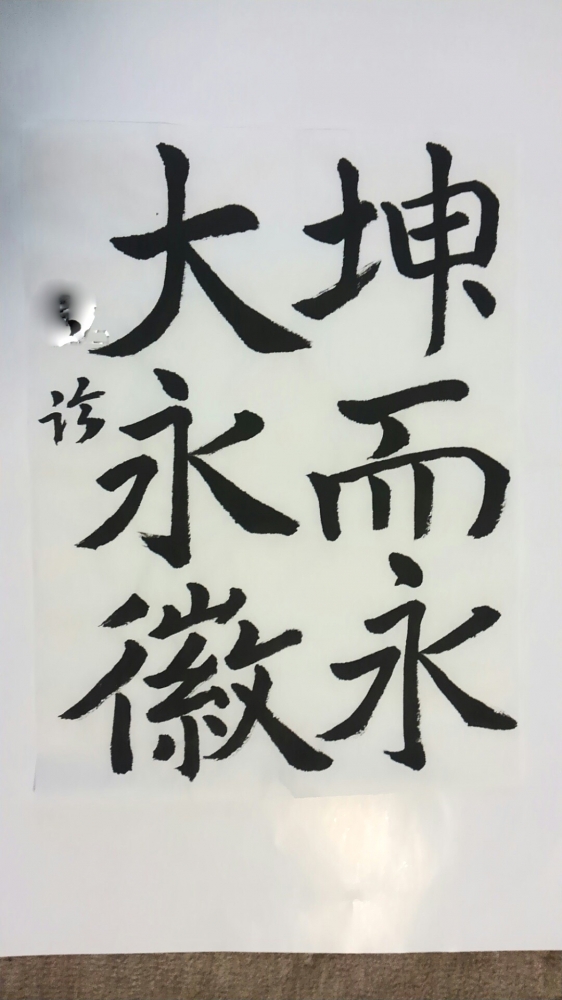 坤而永
大永徽
诊